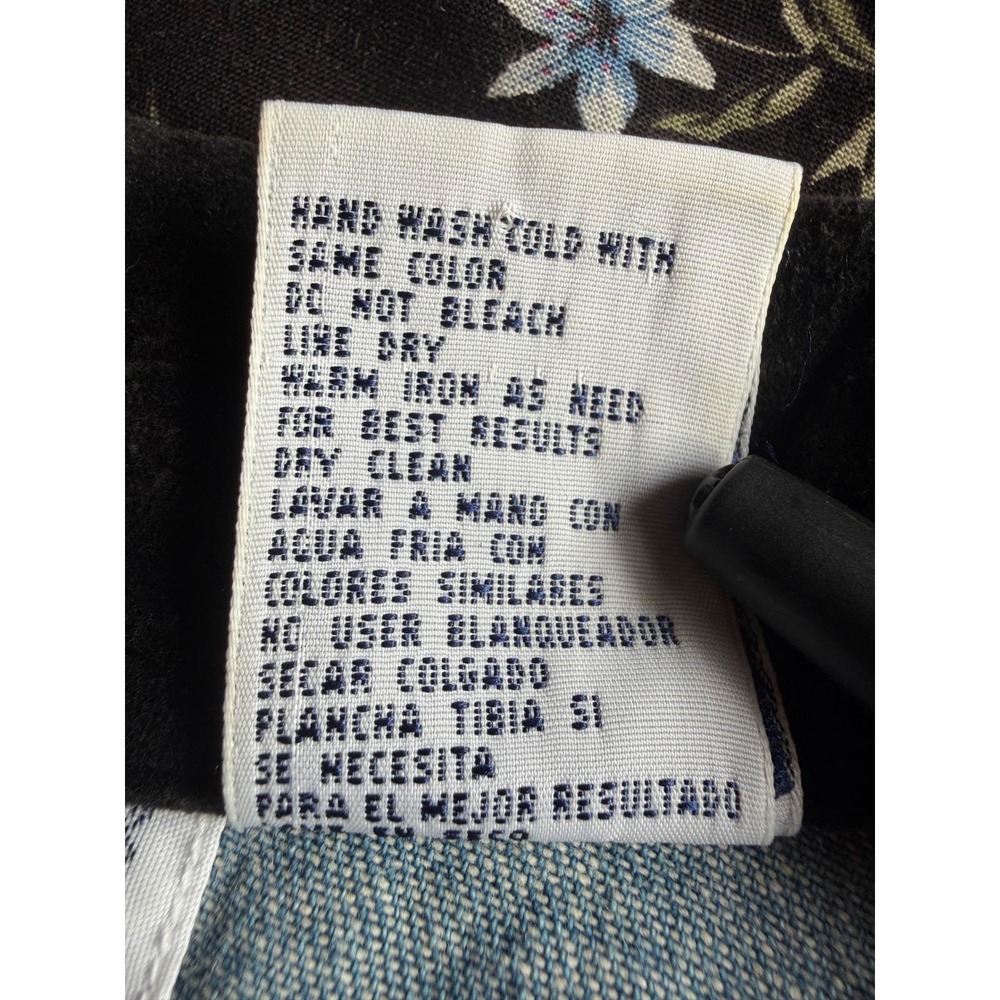 HAND WASH COLD WITH
SAME COLOR
DO NOT BLEACH
LINE DRY
WARM IRON AS NEED
FOR BEST RESULTS
DRY CLEAN
LAVAR A MANO CON
AGUA FRIA CON
COLORES SIMILARES
NO USER BLANQUEADOR
SECAR COLGADO
PLANCHA TIBIA SI
SE NECESITA
PARA EL MEJOR RESULTADO